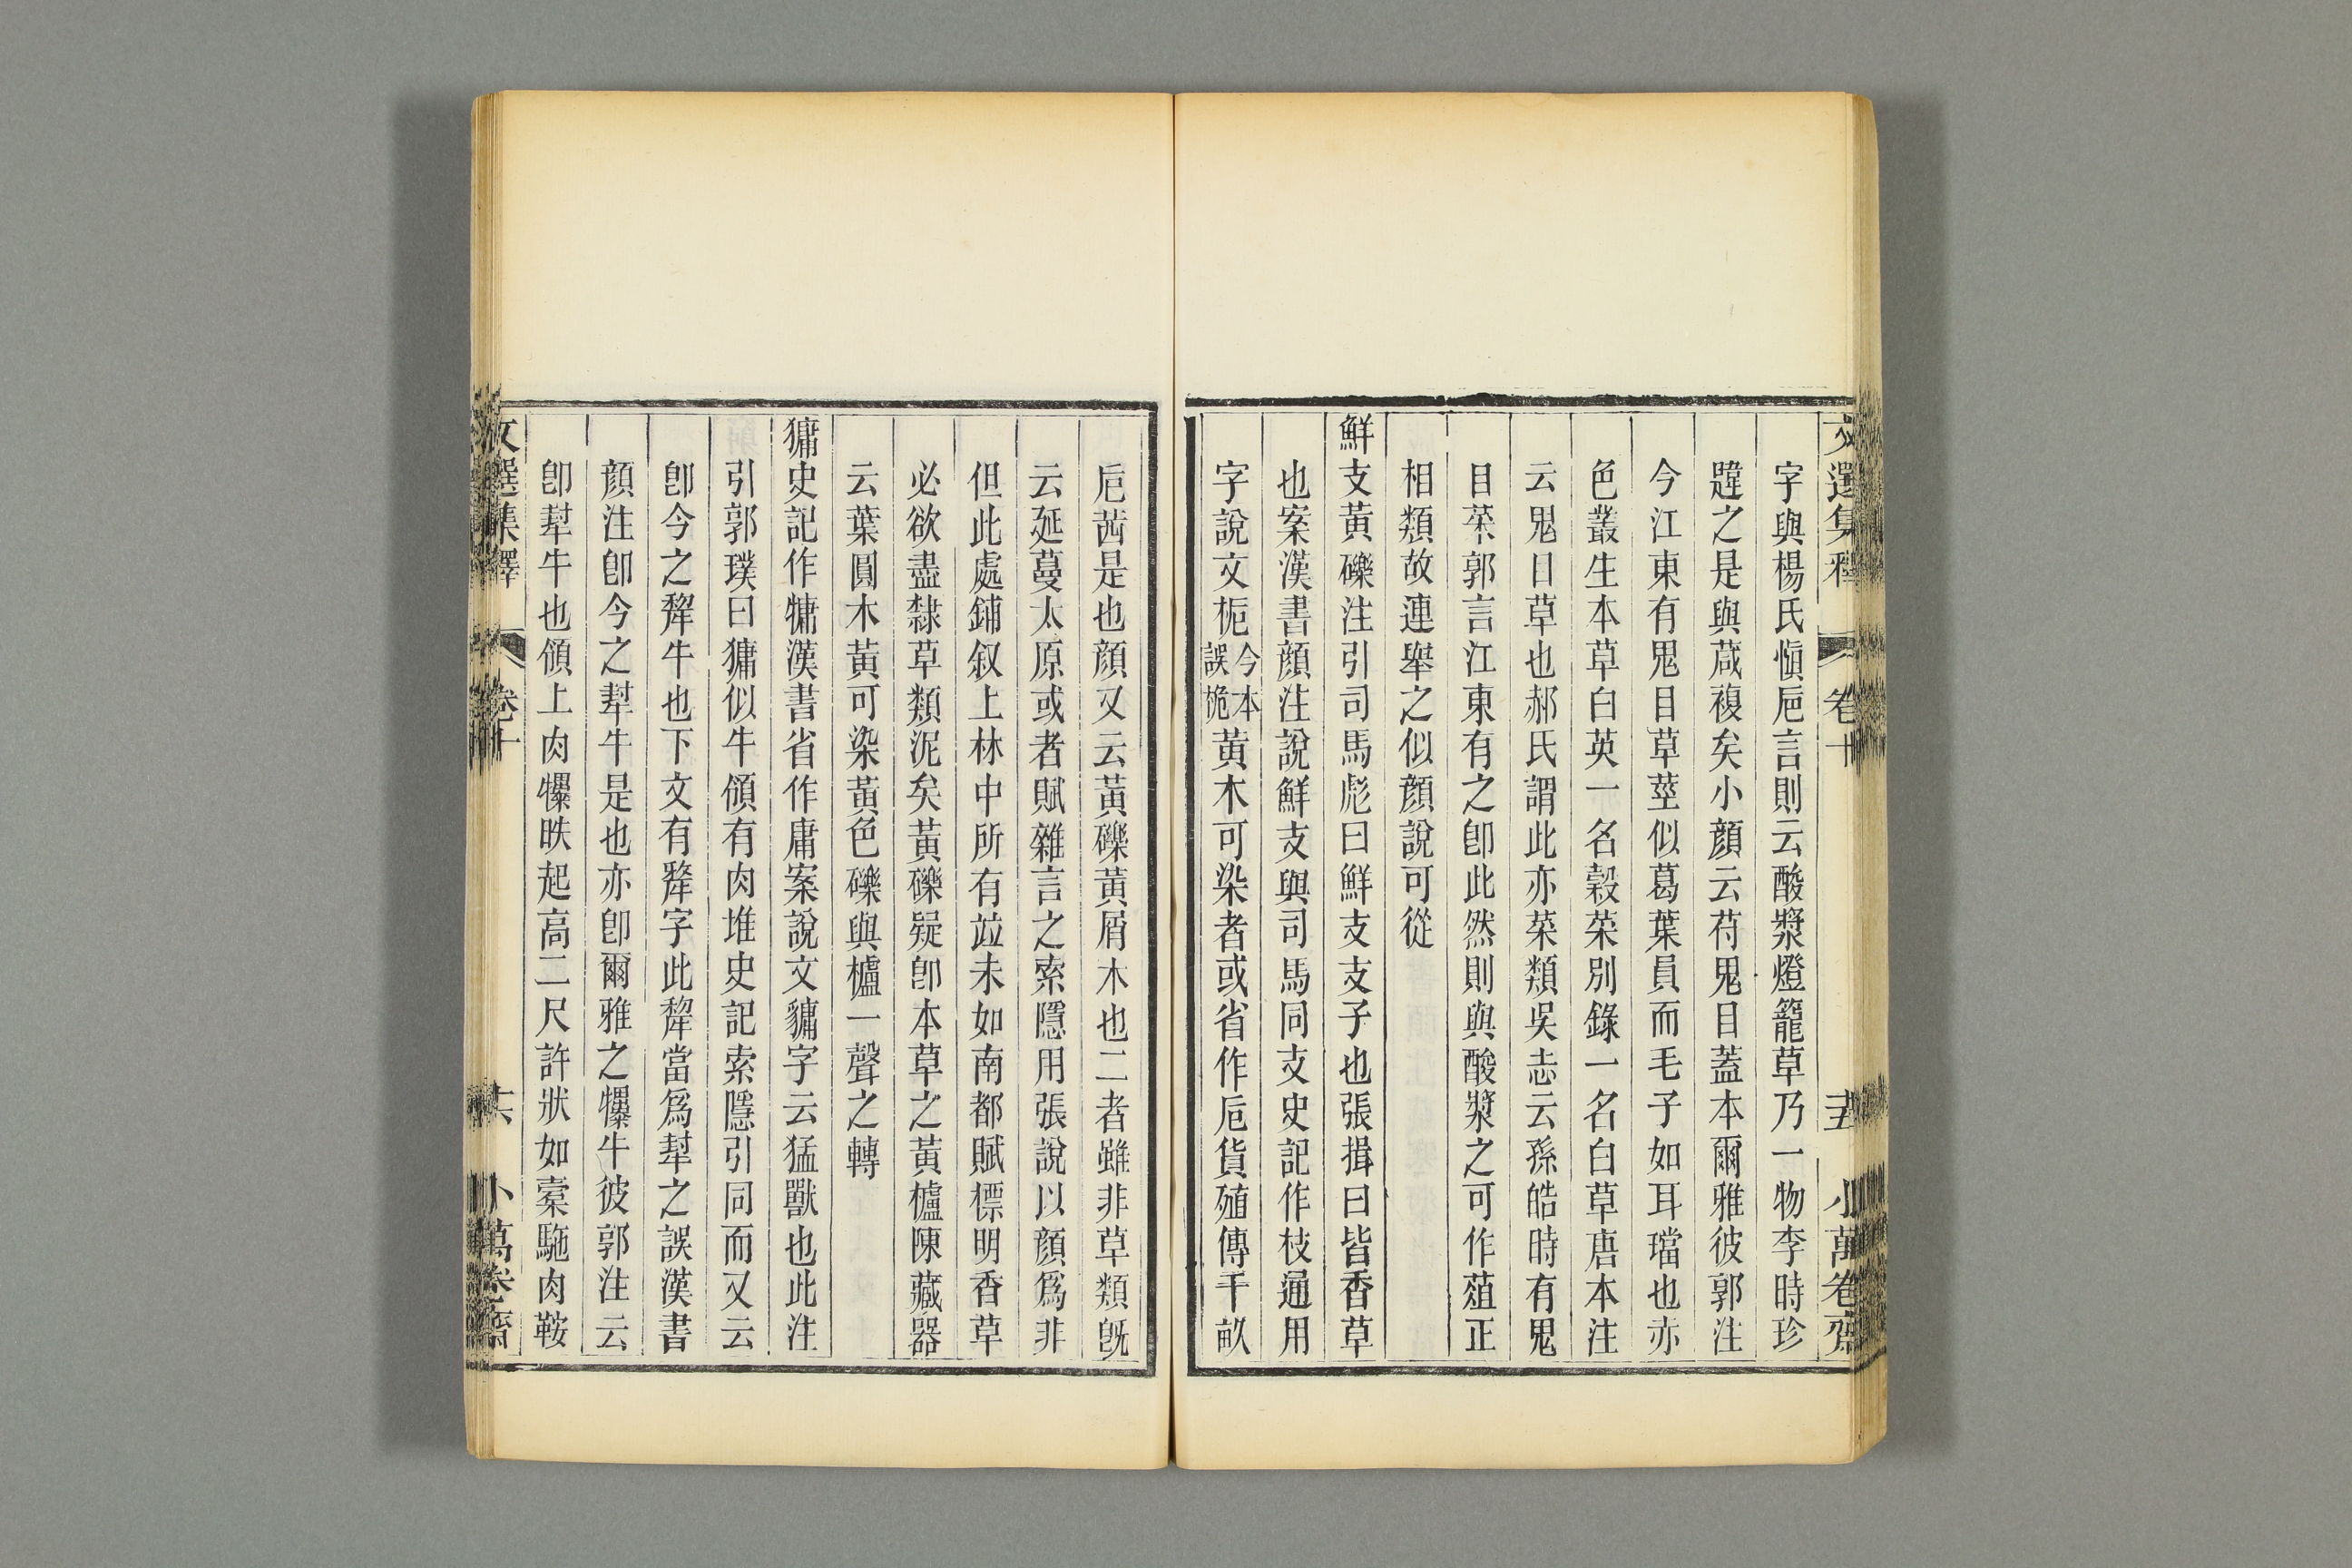 文選集釋 卷十 十五 小萬卷齋
字與楊氏愼巵言則云酸漿燈籠草乃一物李時珍
韙之是與葴複矣小顏云苻鬼目蓋本爾雅彼郭注
今江東有鬼目草莖似葛葉員而毛子如耳璫也赤
色叢生本草白英一名穀菜別錄一名白草唐本注
云鬼目草也郝氏謂此亦菜類吳志云孫皓時有鬼
目菜郭言江東有之卽此然則與酸漿之可作葅正
相類故連舉之似顏說可從
鮮支黃礫注引司馬彪曰鮮支支子也張揖曰皆香草
也案漢書顏注說鮮支與司馬同支史記作枝通用
字說文梔今本誤桅黃木可染者或省作巵貨殖傳千畝
巵茜是也顏又云黃礫黃屑木也二者雖非草類旣
云延蔓太原或者賦雜言之索隱用張說以顏爲非
但此處鋪叙上林中所有竝未如南都賦標明香草
必欲盡隸草類泥矣黃礫疑卽本草之黃櫨陳藏器
云葉圓木黃可染黃色礫與櫨一聲之轉
㺎史記作㹙漢書省作庸案說文貗字云猛獸也此注
引郭璞曰㺎似牛領有肉堆史記索隱引同而又云
卽今之犎牛也下文有犛字此犎當爲犎之誤漢書
顏注卽今之犎牛是也亦卽爾雅之犦牛彼郭注云
卽犎牛也領上肉犦胅起高二尺許狀如橐駞肉鞍
文選集釋 卷十 十六 小萬卷齋